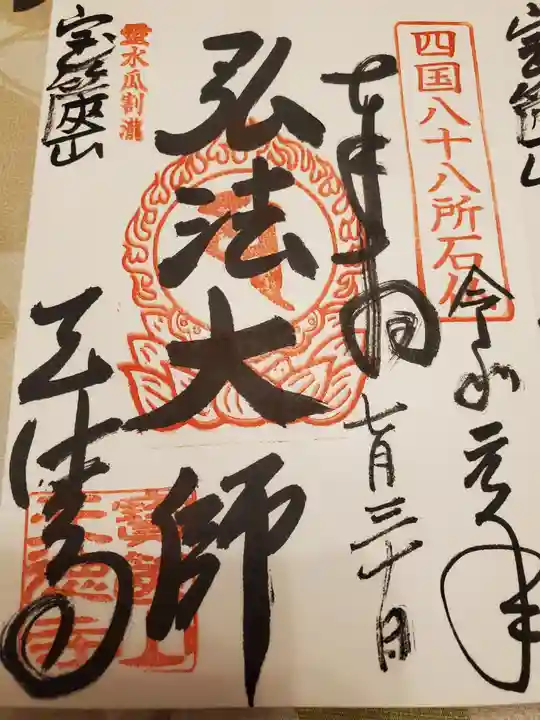 四国八十八所石仏
令和元年
七月三十日
奉拝
弘法大師
霊水瓜割瀧
宝篋山
天徳寺
宝篋山